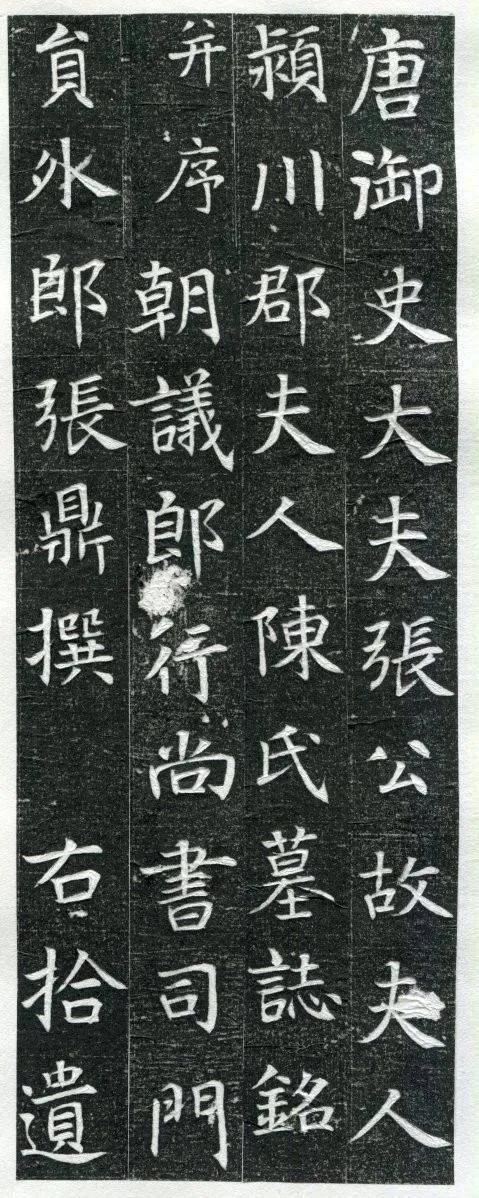 唐御史大夫張公故夫人
潁川郡夫人陳氏墓誌銘
并序 朝議郎行尚書司門
員外郎張鼎撰 右拾遺